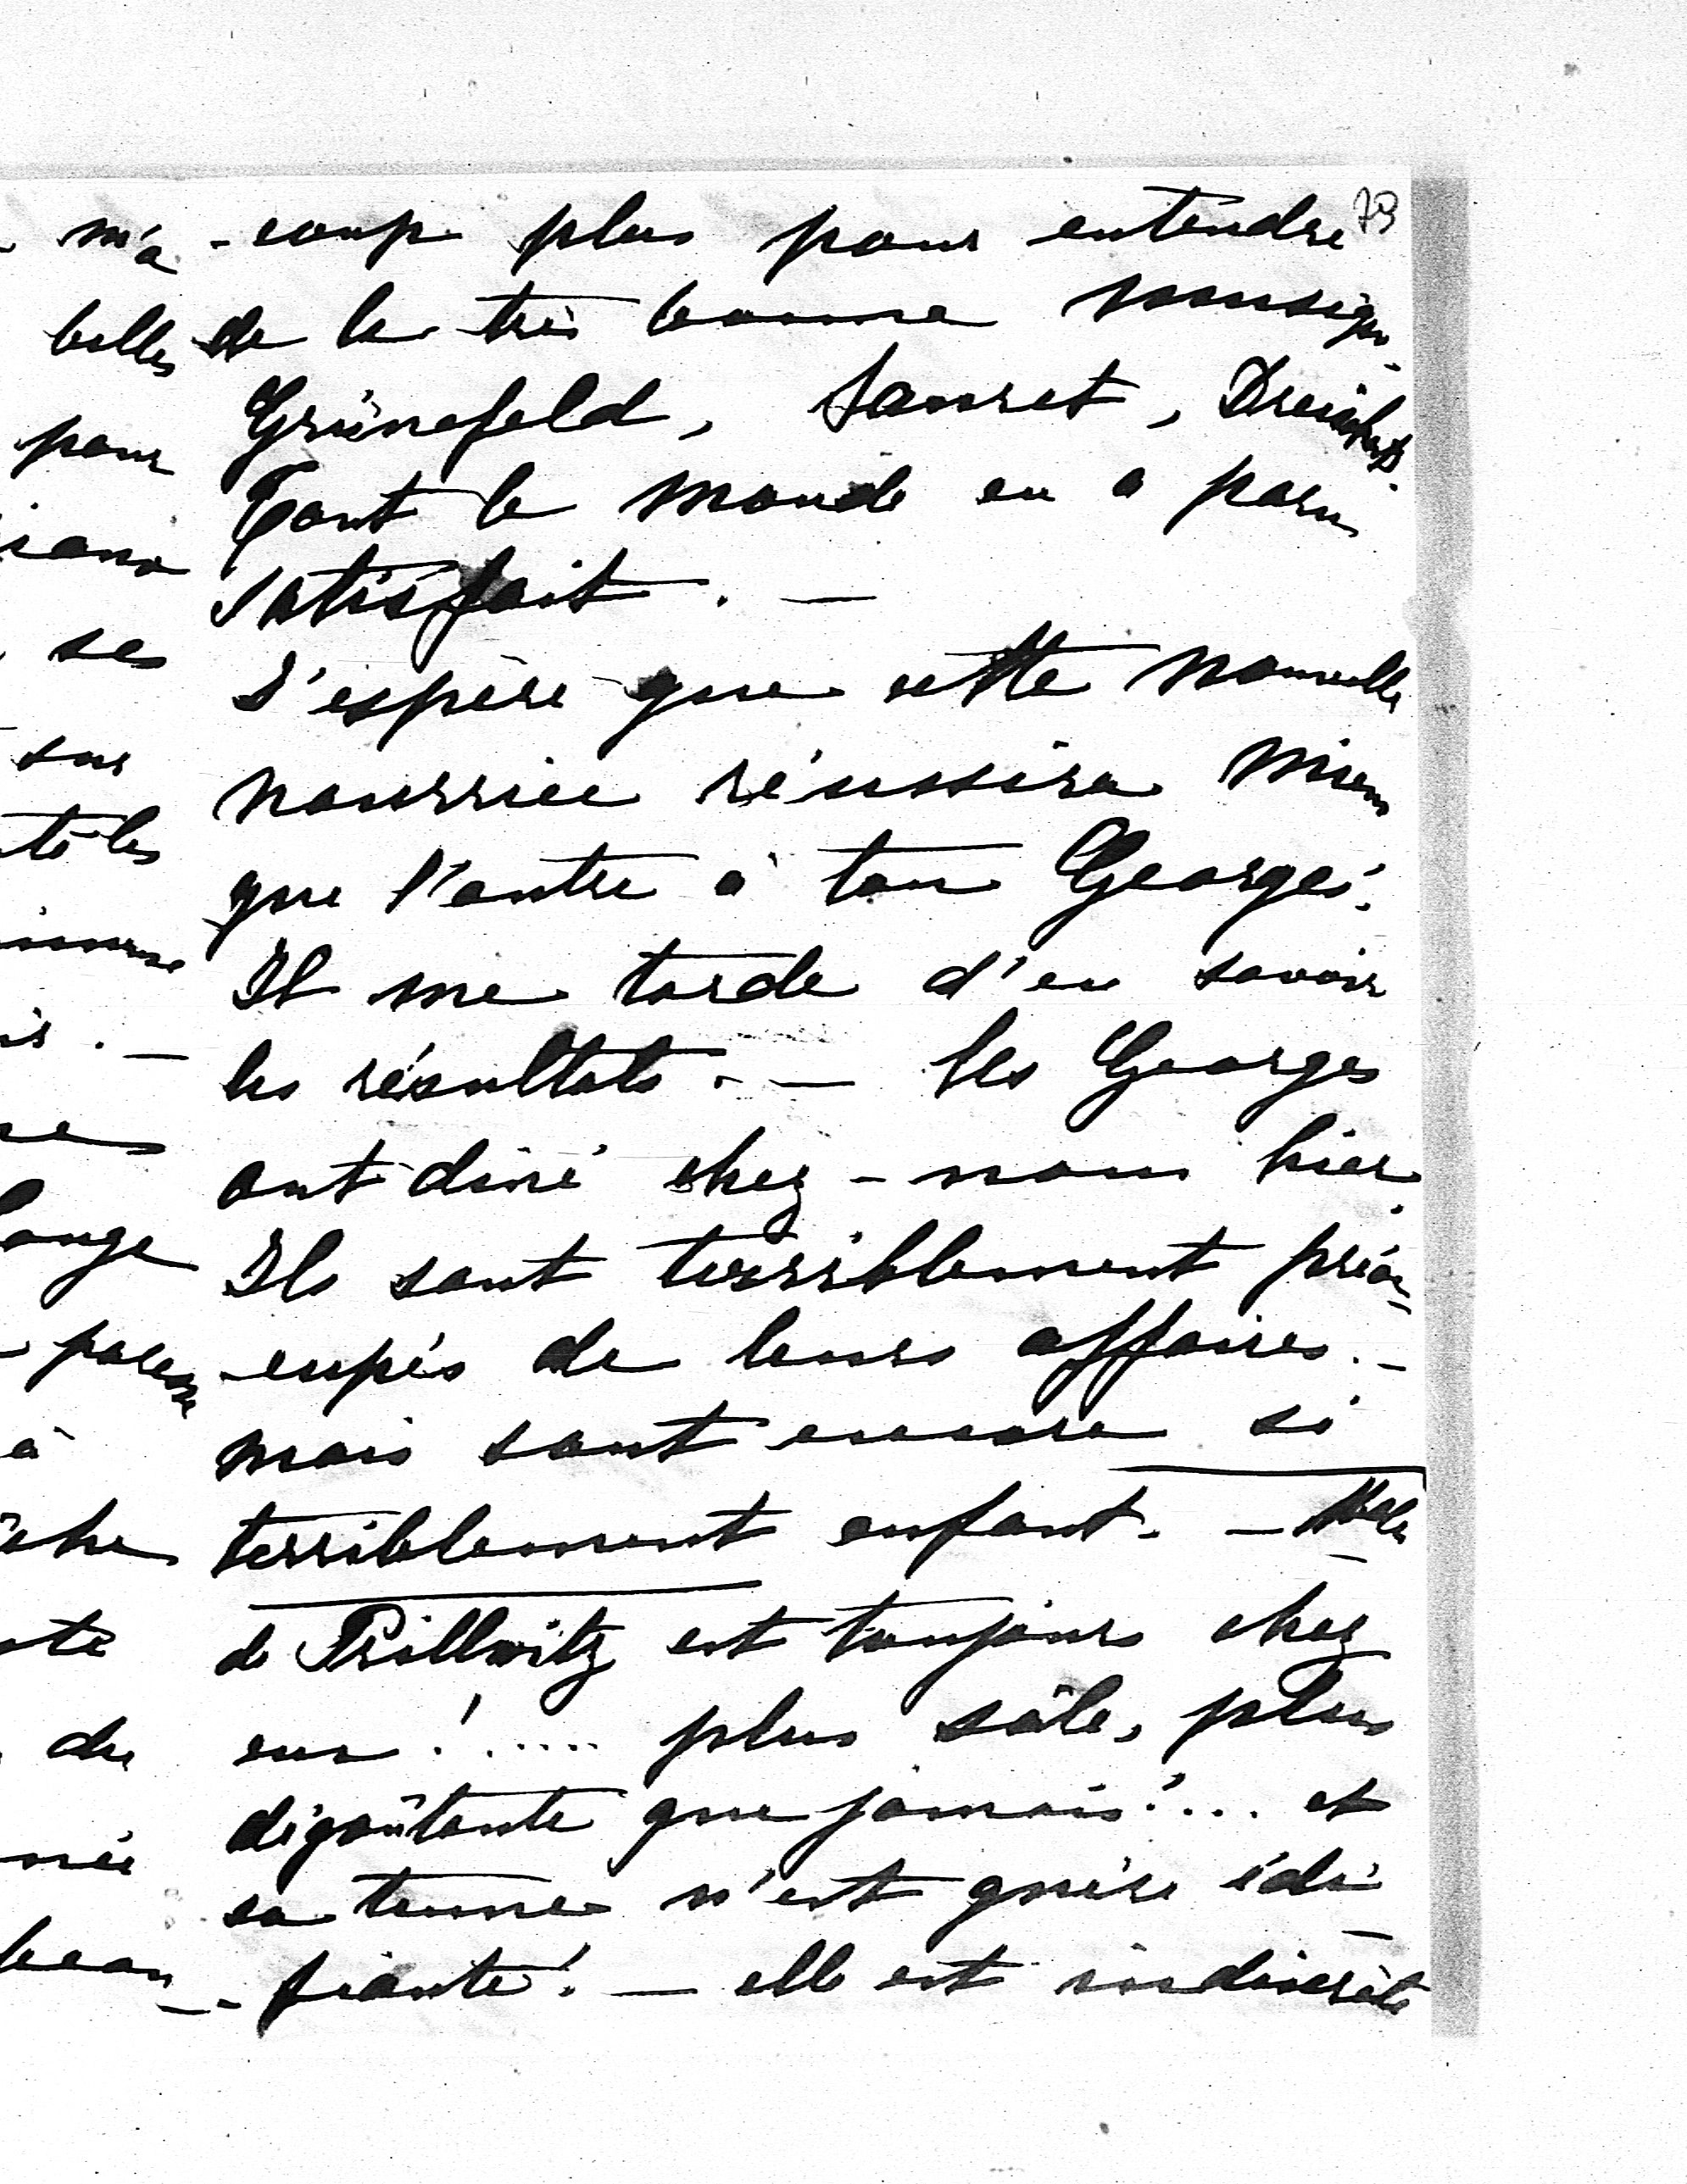 79
-coup plus pour entendre
de la très bonne musique.
Grünefeld, Sauret,
Tout le monde en a paru
satisfait. —
J'espère que cette nouvelle
nourrice réussira mieux
que l'autre à ton Georgei.
Il me tarde d'en savoir
les résultats. — Les Georges
ont diné chez-nous hier.
Ils sont terriblement préoc-
-cupés de leurs affaires. -
mais sont encore si
terriblement enfant. — Melle
de Prillwitz est toujours chez
eux!..... plus sâle, plus
dégoûtante que jamais!... et
sa tenue n'est guère édi-
-fiante! — elle est indiscrète
m'a
belles
pour
ses
sur
à
du
beau-